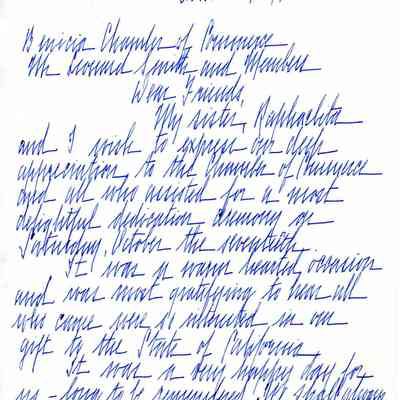 Benicia Chamber of Commerce
Mr Leonard Smith and Members
Dear Friends,
My sister, Raphaelita
and I wish to express our deep
appreciation to the Chamber of Commerce
and all who assisted for a most
delightful dedication ceremony on
Saturday, October the seventeth.
It was a warm hearted occasion
and was most gratifying to hear all
who came were so interested in our
gift to the State of California.
It was a very happy day for
us - long to be remembered. We shall always